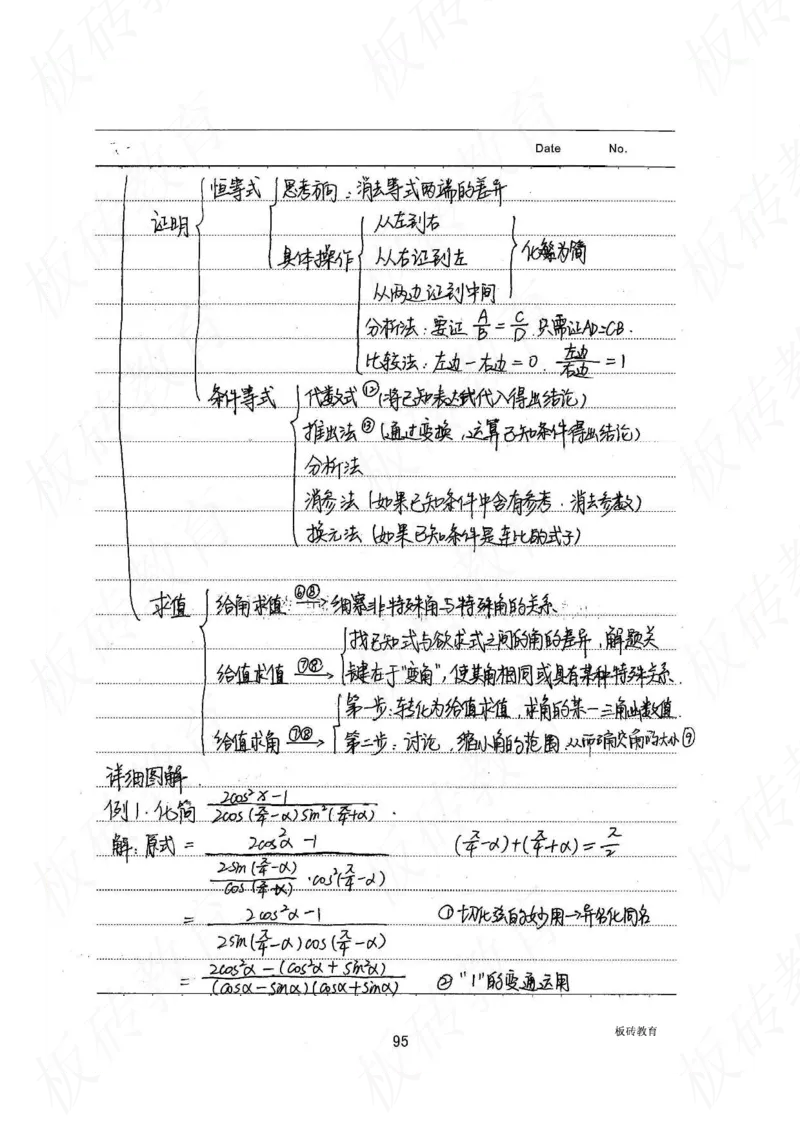 Date No.
恒等式 思考方向：消去等式两端的差异
证明 从左到右
具体操作 从右证到左 化繁为简
从两边证到中间
分析法：要证 A/B = C/D 只需证AD=CB.
比较法：左边-右边=0. 左边/右边=1
条件等式 代数式⑫(将已知表达式代入得出结论)
推出法③(通过变换，运算已知条件得出结论)
分析法
消参法(如果已知条件中含有参考．消去参数)
换元法(如果已知条件是连比的式子)
求值 给角求值 ⑥⑧→ 细察非特殊角与特殊角的关系.
找已知式与欲求式之间的角的差异，解题关
给值求值 ⑦⑧→ 键在于"变角"，使其角相同或具有某种特殊关系.
第一步：转化为给值求值，求角的某一三角函数值.
给值求角 ⑦⑧→ 第二步：讨论，缩小角的范围.从而确定角的大小⑨
详细图解.
例1. 化简 (2cos²x-1)/(2cos(π/4-α)sin²(π/4+α)) .
解：原式 = (2cos²α-1)/(2sin(π/4-α)/cos(π/4-α)·cos²(π/4-α)) (π/4-α)+(π/4+α)=π/2
= (2cos²α-1)/(2sin(π/4-α)cos(π/4-α)) ①切化弦的妙用→异名化同名
= (2cos²α-(cos²α+sin²α))/((cosα-sinα)(cosα+sinα)) ②"1"的变通运用
95
板砖教育